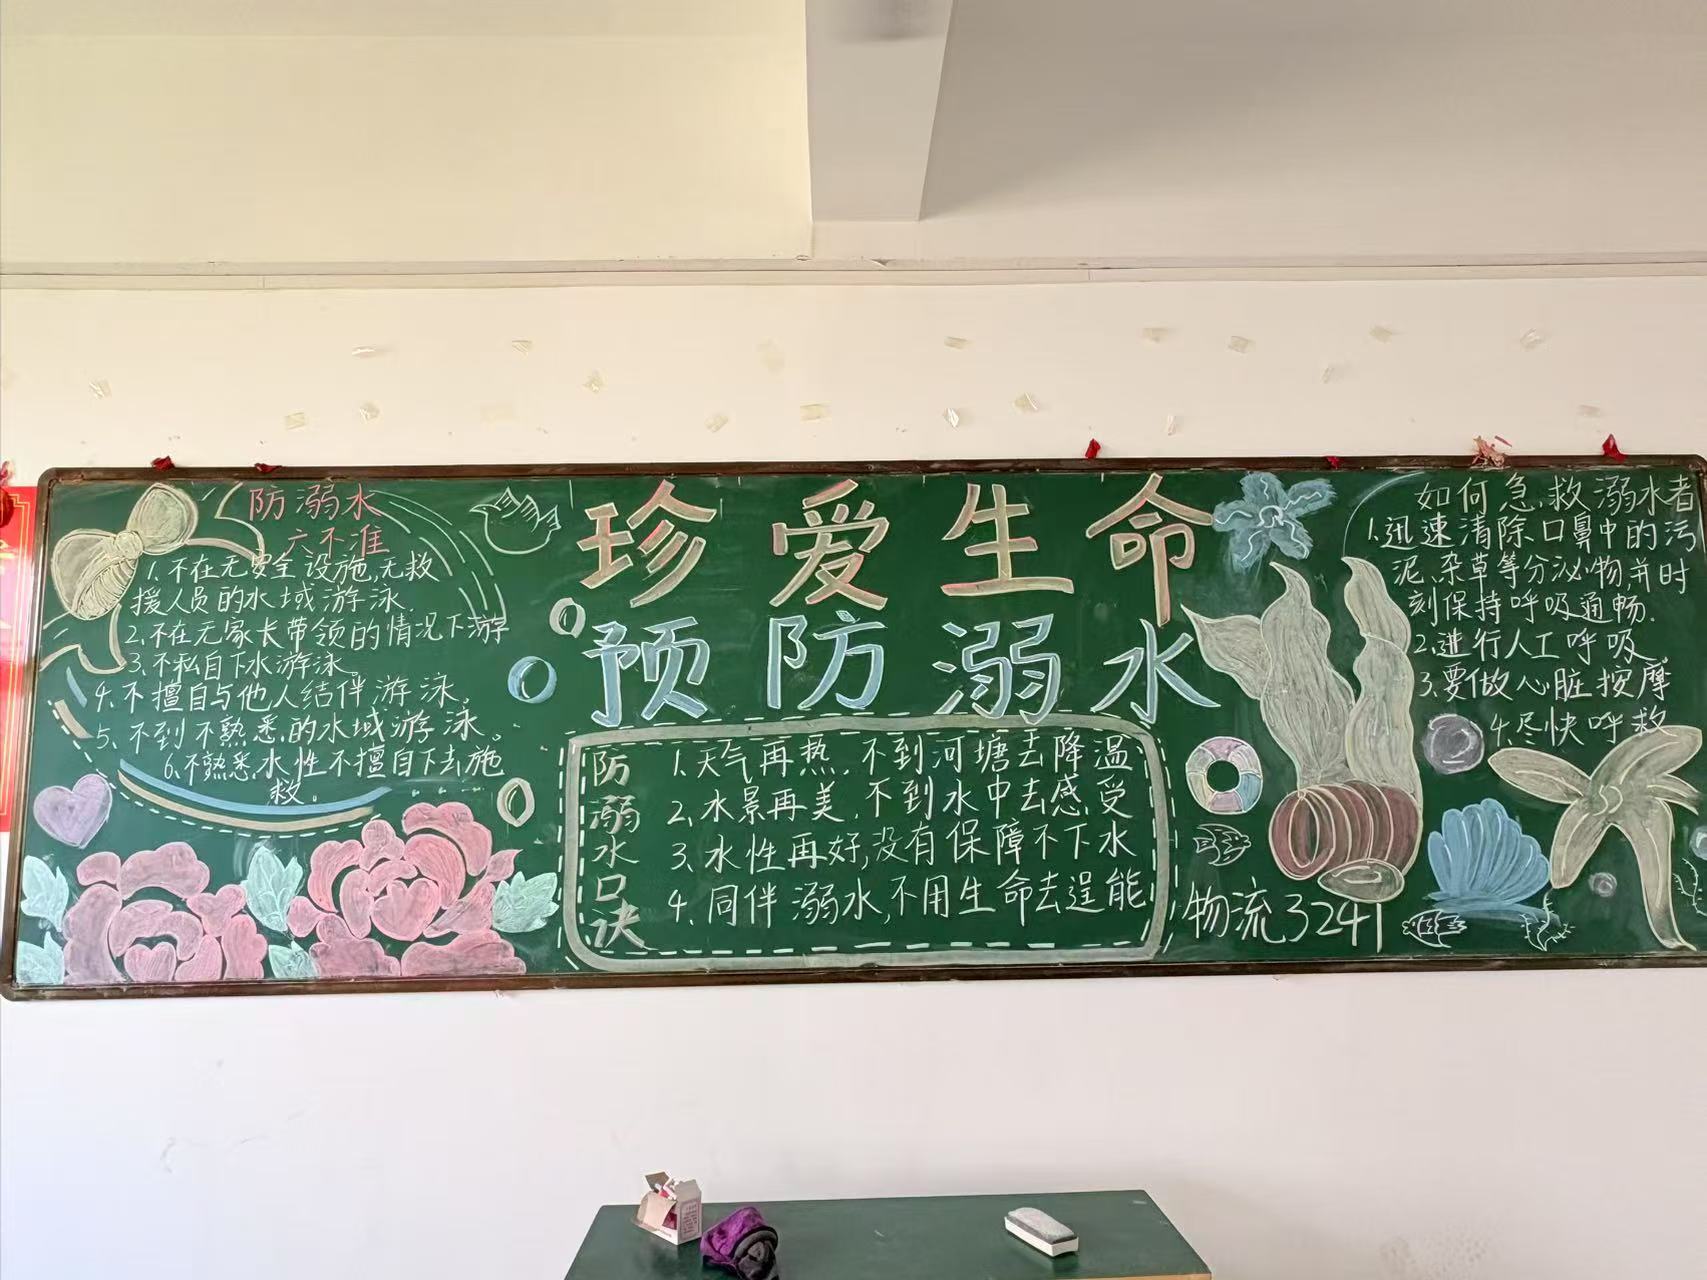 防溺水
六不准
1.不在无安全设施,无救
援人员的水域游泳.
2.不在无家长带领的情况下游
3.不私自下水游泳
4.不擅自与他人结伴游泳,
5.不到不熟悉的水域游泳。
6.不熟悉水性不擅自下去施
救。
珍爱生命
预防溺水
防溺水口诀
1.天气再热,不到河塘去降温
2.水景再美,不到水中去感受
3.水性再好,没有保障不下水
4.同伴溺水,不用生命去逞能
物流3241
如何急救溺水者
1.迅速清除口鼻中的污
泥、杂草等分泌物并时
刻保持呼吸通畅.
2.进行人工呼吸
3.要做心脏按摩
4.尽快呼救